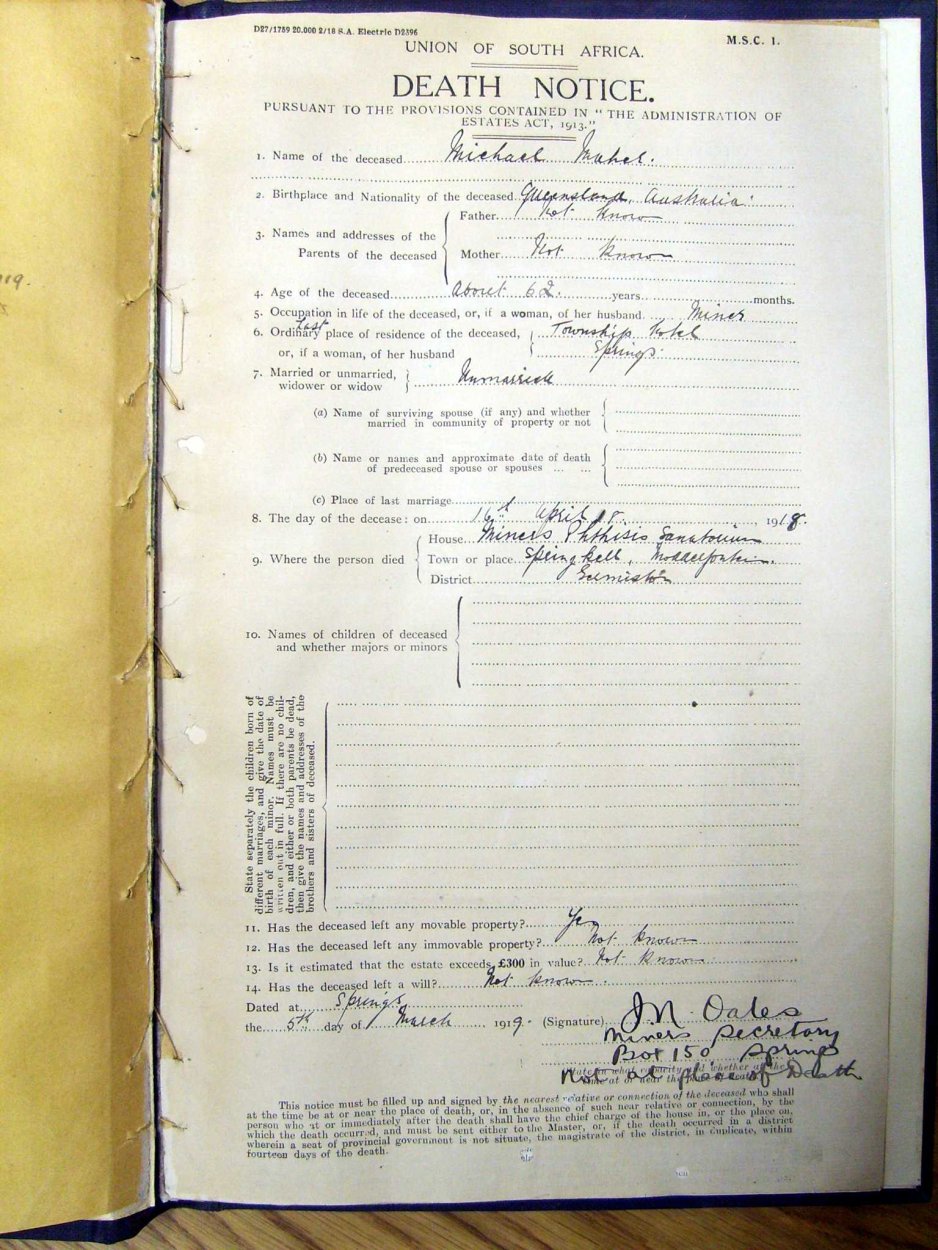 D27/1759 20.000 2/18 S.A. Electric D2396
M.S.C. 1.
UNION OF SOUTH AFRICA.
DEATH NOTICE.
PURSUANT TO THE PROVISIONS CONTAINED IN "THE ADMINISTRATION OF
ESTATES ACT, 1913."
1. Name of the deceased Michael Mahel.
2. Birthplace and Nationality of the deceased Queensland, Australia
3. Names and addresses of the Parents of the deceased
Father Not know
Mother Not known
4. Age of the deceased about 62. years months.
5. Occupation in life of the deceased, or, if a woman, of her husband Miner
Last
6. Ordinary place of residence of the deceased, Township Hotel
or, if a woman, of her husband Springs.
7. Married or unmarried, widower or widow Unmarried
(a) Name of surviving spouse (if any) and whether
married in community of property or not
(b) Name or names and approximate date of death
of predeceased spouse or spouses ... ...
(c) Place of last marriage
8. The day of the decease: on 16th April 18. 1918.
9. Where the person died
House Miners Phthisis Sanatorium
Town or place Springkell, Modderfontein.
District Germiston
10. Names of children of deceased
and whether majors or minors
State separately the children born of
different marriages, and give the date of
birth of each minor. Names must be
written out in full. If there are no chil-
dren, and either or both parents be dead,
then give the names and addresses of the
brothers and sisters of deceased.
11. Has the deceased left any movable property? Yes
12. Has the deceased left any immovable property? Not known
13. Is it estimated that the estate exceeds £300 in value? Not known
14. Has the deceased left a will? Not known.
Dated at Springs
the 5th day of March 1919. (Signature) J M Oates
Miners Secretary
Box 150 Springs
Not at place of Death
This notice must be filled up and signed by the nearest relative or connection of the deceased who shall
at the time be at or near the place of death, or, in the absence of such near relative or connection, by the
person who at or immediately after the death shall have the chief charge of the house in, or the place on,
which the death occurred, and must be sent either to the Master, or, if the death occurred in a district
wherein a seat of provincial government is not situate, the magistrate of the district, in duplicate, within
fourteen days of the death.